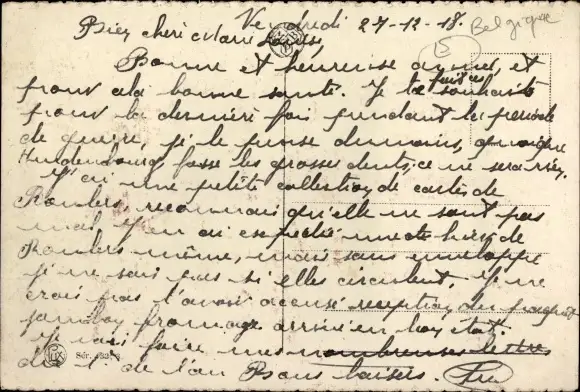 Vendredi 27-12-18. Belgique
Bien chéri Marie Louise,
Bonne et heureuse année, et
pour la bonne santé. Je te souhaite
pour la dernière fois pendant la période
de guerre, je le pense du moins, quoique
Hindenbourg fasse les grosses dents, ce ne sera rien.
J'ai une petite collection de cartes de
Roulers reconnais qu'elle ne sont pas
mal. J'en ai expédié une hier de
Roulers même, mais sans enveloppe
je ne sais pas si elles circulent. Je ne
crois pas t'avoir accusé reception du paquet
jambon fromage arrivé en bon état.
Je vais faire mes nombreuses lettres
du 1 de l'an Bons baisers.
Sér.